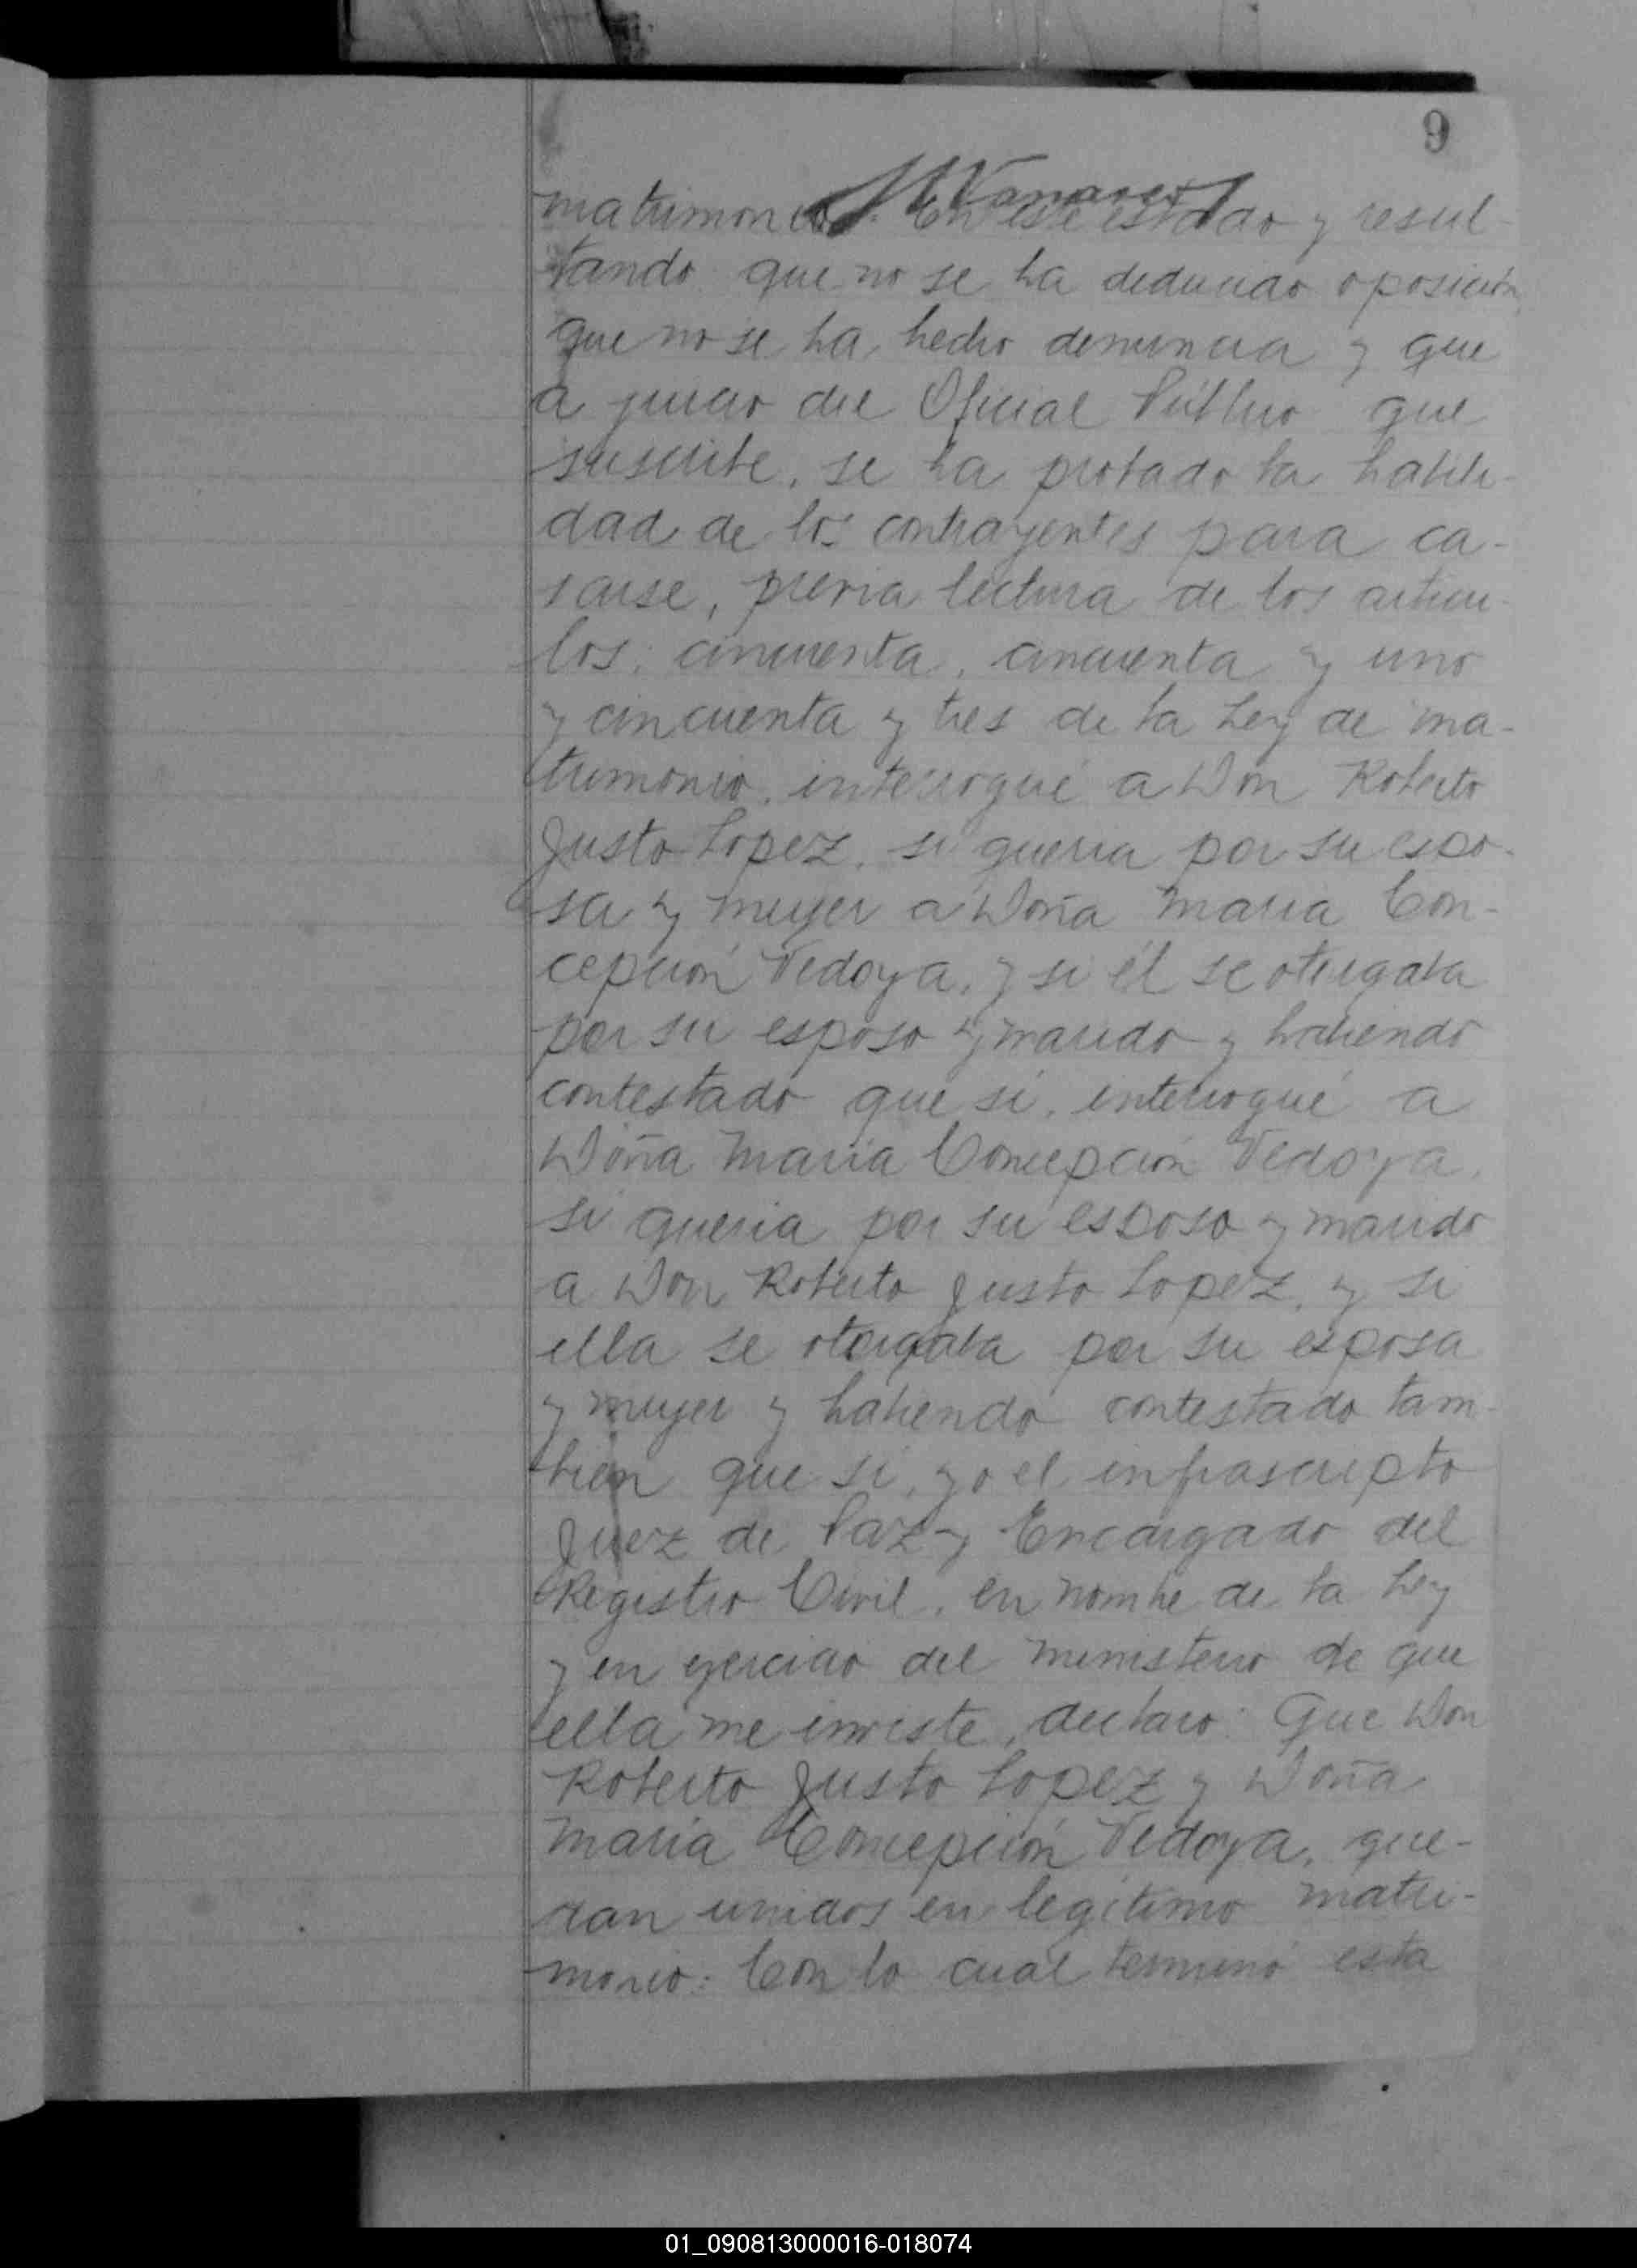 9
matrimonio. En este estado y resul-
tando que no se ha deducido oposición,
que no se ha hecho denuncia y que
a juicio del Oficial Público que
suscribe, se ha probado la habili-
dad de los contrayentes para ca-
sarse, previa lectura de los artícu-
los: cincuenta, cincuenta y uno
y cincuenta y tres de la Ley de ma-
trimonio, interrogué a Don Roberto
Justo Lopez, si queria por su espo-
sa y mujer a Doña Maria Con-
cepción Vedoya, y si él se otorgaba
por su esposo y marido y habiendo
contestado que sí, interrogué a
Doña Maria Concepción Vedoya,
si queria por su esposo y marido
a Don Roberto Justo Lopez, y si
ella se otorgaba por su esposa
y mujer y habiendo contestado tam-
bien que sí, yo el infrascripto
Juez de Paz y Encargado del
Registro Civil, en nombre de la Ley
y en ejercicio del ministerio de que
ella me inviste, declaro: Que Don
Roberto Justo Lopez y Doña
Maria Concepción Vedoya, que-
dan unidos en legítimo matri-
monio: Con lo cual terminó esta
01_090813000016-018074